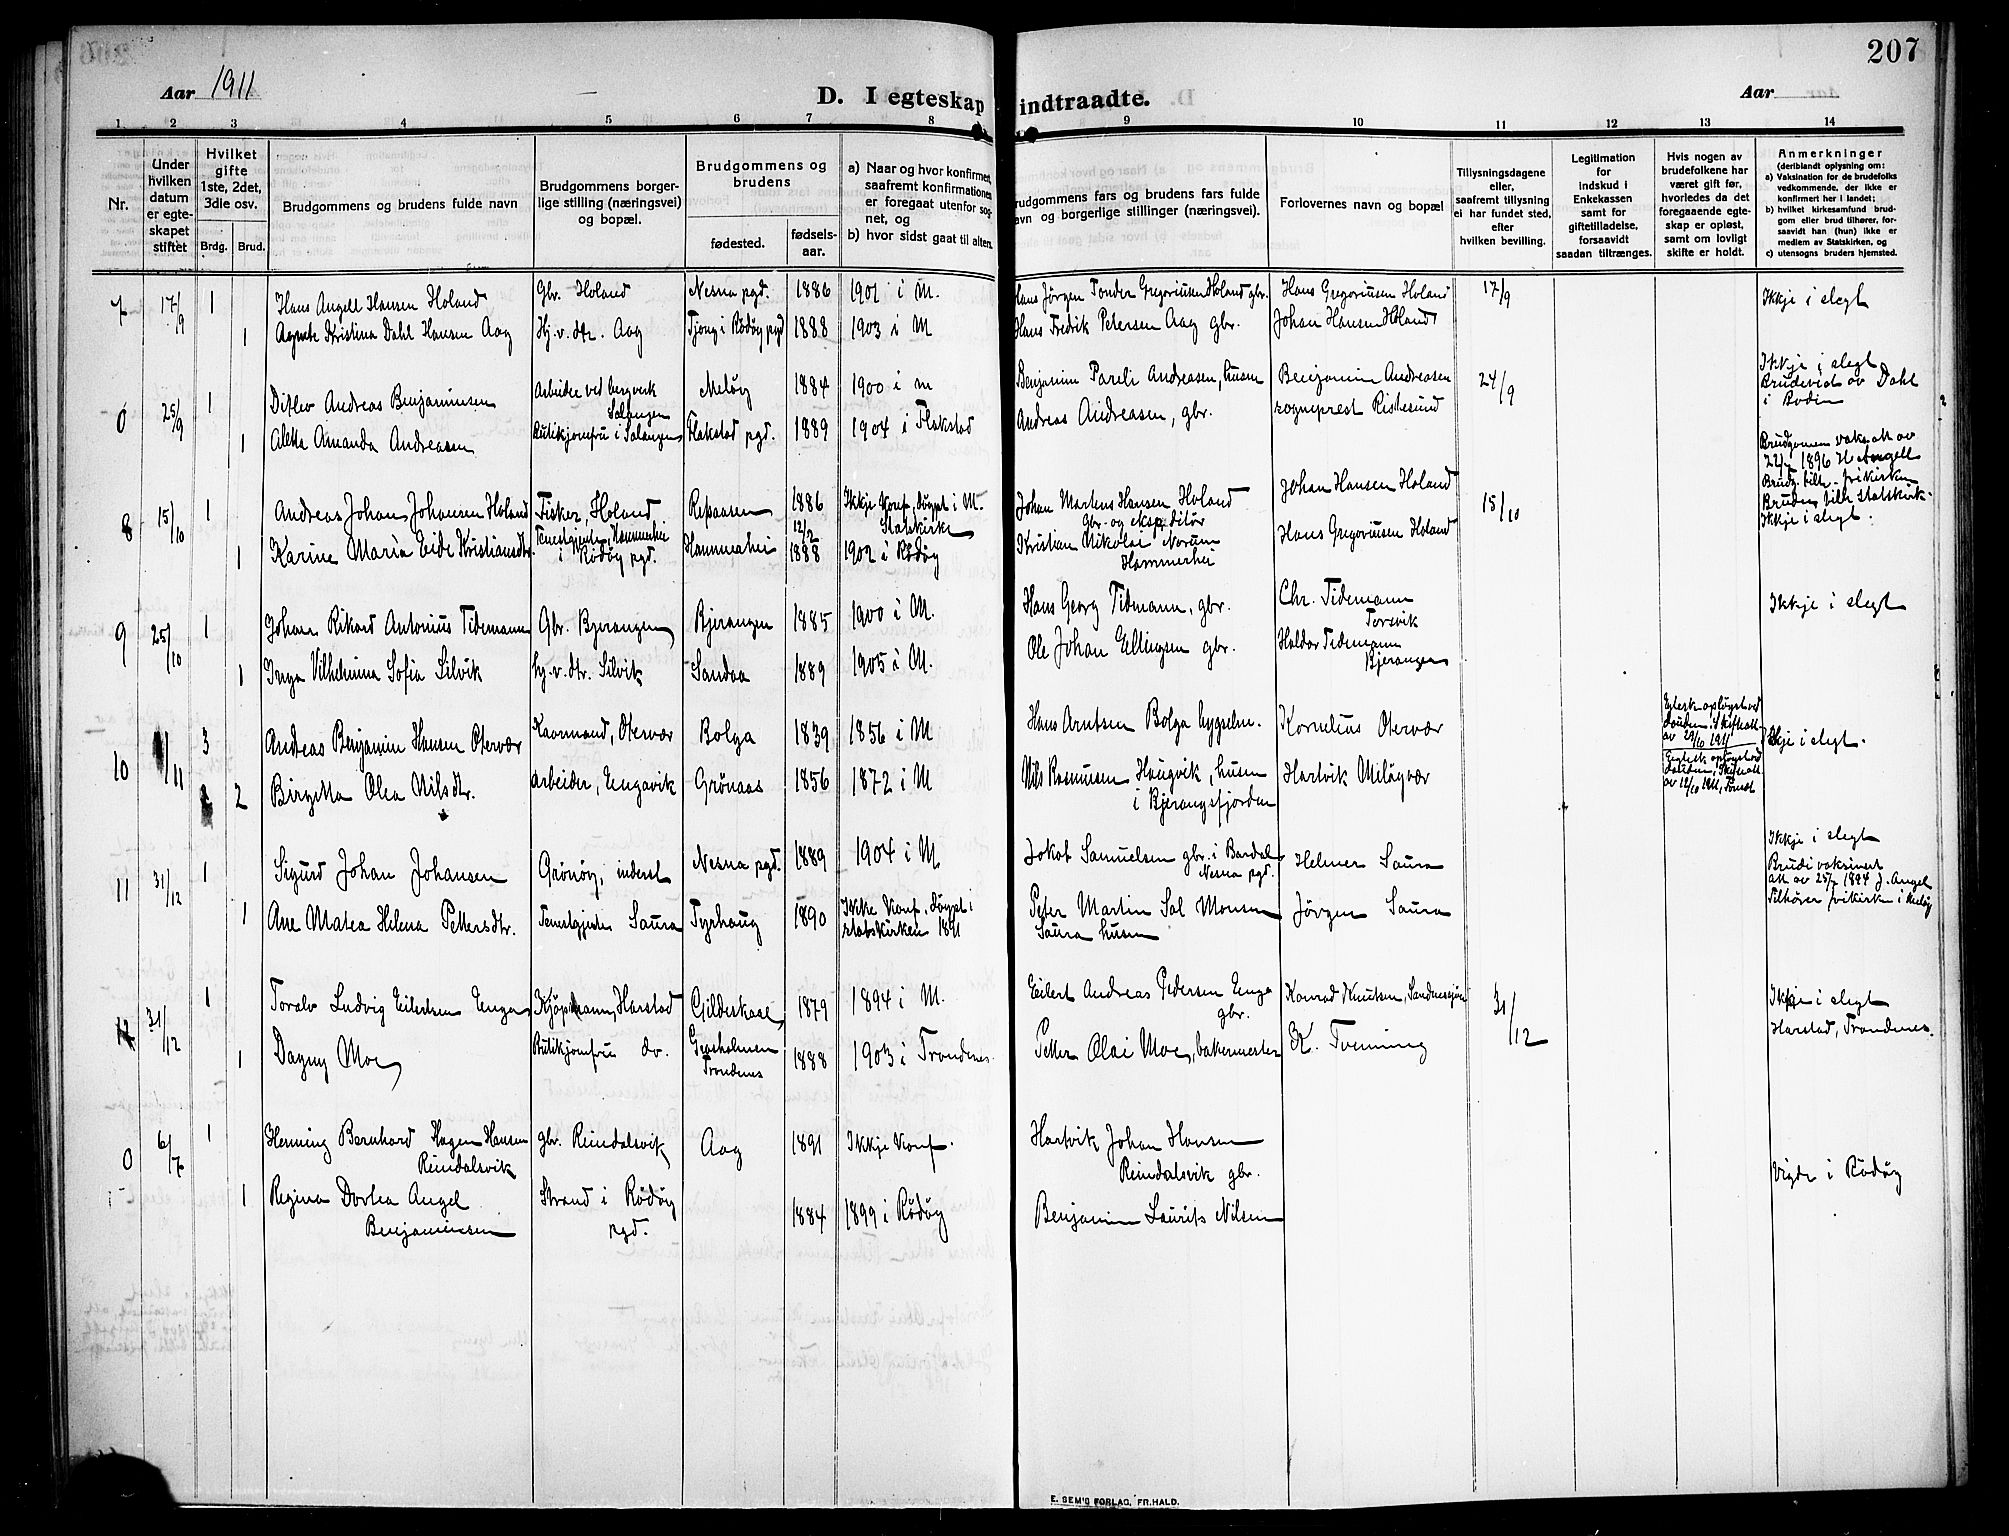 207
Aar 1911
D. I egteskap indtraadte.
Aar
1 2 3 4 5 6 7 8 9 10 11 12 13 14
Nr.
Under hvilken datum er egteskapet stiftet
Hvilket gifte 1ste, 2det, 3die osv.
Brdg. Brud.
Brudgommens og brudens fulde navn
Brudgommens borgerlige stilling (næringsvei) og bopæl.
Brudgommens og brudens
fødested.
fødselsaar.
a) Naar og hvor konfirmert, saafremt konfirmationen er foregaat utenfor sognet, og
b) hvor sidst gaat til alters.
Brudgommens fars og brudens fars fulde navn og borgerlige stillinger (næringsvei).
Forlovernes navn og bopæl
Tillysningsdagene eller, saafremt tillysning ei har fundet sted, efter hvilken bevilling.
Legitimation for indskud i Enkekassen samt for giftetilladelse, forsaavidt saadan tiltrænges.
Hvis nogen av brudefolkene har været gift før, hvorledes da det foregaaende egteskap er opløst, samt om lovligt skifte er holdt.
Anmerkninger
(deriblandt oplysning om:
a) Vaksination for de brudefolks vedkommende, der ikke er konfirmert her i landet;
b) hvilket kirkesamfund brudgom eller brud tilhører, forsaavidt han (hun) ikke er medlem av Statskirken, og
c) utensogns bruders hjemsted.
7 17/9 1 Hans Angell Hansen Holand Gbr. Holand Nesna pgd. 1886 1901 i M. Hans Jørgen Tonder Gregoriusen Holand gbr. Hans Gregoriusen Holand 17/9 Ikkje i slegt
1 Agnete Kristina Dahl Hansen Aag Hj. v. dtr. Aag Tjong i Rødøy pgd 1888 1903 i M Hans Fredrik Petersen Aag gbr. Johan Hansen Holand
0 25/9 1 Ditlev Andreas Benjaminsen Arbeider ved bergverk Salangen Meløy 1884 1900 i M Benjamin Pareli Andreasen, husm Benjamin Andreasen 24/9 Ikkje i slegt
Brudevid av Dahl i Bodin
1 Aletta Amanda Andreasen Butikjomfru i Salangen Flakstad pgd. 1889 1904 i Flakstad Andreas Andreasen, gbr. sogneprest Ristesund
8 15/10 1 Andreas Johan Johansen Holand Fisker, Holand 1886 12/2 Ikkje Konf, døypt i M. Statskirke Johan Martens Hansen Holand gbr. og ekspeditør Johan Hansen Holand 15/10
Brudgomen vaks. att av 1896 H Angell
Brudg. tilh. frikirken
Bruden tilh statskirk.
Ikkje i slegt.
1 Karine Maria Eide Kristiansdtr. Tenestgjente, Hammerhei i Rødøy pgd. Hammerhei 1888 1902 i Rødøy Kristian Nikolai Norum Hammerhei Hans Gregoriusen Holand
9 25/10 1 Johan Rikard Antonius Tidemann Gbr. Bjerangen Bjerangen 1885 1900 i M. Hans Georg Tidmann, gbr. Chr. Tidemann Torsvik Ikkje i slegt
1 Inga Vilhelmina Sofia Silvik hj. v. dtr. Silvik Sandaa 1889 1905 i M. Ole Johan Ellingsen gbr. Haldor Tidemann Bjerangen
10 /11 3 Andreas Benjamin Hansen Otervær Kaarmand, Otervær Bolga 1839 1856 i M Hans Arntsen Bolga bygselm. Kornelius Otervær Egtesk. opløyst ved døuden. Skifteatt. av 29/10 1911 Ikkje i slegt.
2 Birgitta Olea Nilsdtr. arbeider, Engavik Grønaas 1856 1872 i M Nils Rasmussen Haugvik, husm i Bjerangsfjorden Hartvik Meløyvær Egtesk opløyst ved døuden, Skifteatt. av 12/10 1911,
11 31/12 1 Sigurd Johan Johansen Grønøy, inderst Nesna pgd. 1889 1904 i M Jokob Samuelsen gbr. i Bardal Nesna pgd. Helmer Saura Ikkje i slegt
1 Ane Matea Helena Pettersdtr. Tenestgjente Saura Tyrhaug 1890 Ikke Konf, døypt i statskirken 1891 Peter Martin Sal Monsen Saura husm Jørgen Saura Brudi vaksinert att av 25/7 1894 J. Angel
Tilhører frikirk i Meløy
12 31/12 1 Toralv Ludvig Eilertsen Enga Kjøpmann, Harstad Gildeskaal 1879 1894 i M. Eilert Andreas Pedersen Enga gbr. Konrad Knutsen, Sandnessjøen 31/12 Ikkje i slegt
1 Dagny Moe Butikjomfru do. Grasholmen Trondenes 1888 1903 i Trondenes. Petter Olai Moe, bakermester K. Tvenning Harstad, Trondenes.
0 6/7 1 Henning Bernhard Hagen Hansen Reindalsvik gbr. Reindalsvik Aag 1891 Ikkje Konf. Hartvik Johan Hansen Reindalsvik gbr.
1 Regina Dortea Angel Benjaminsen Strand i Rødøy pgd. 1884 1899 i Rødøy Benjamin Laurits Nilsen Vigde i Rødøy
E. SEM'S FORLAG, FR.HALD.